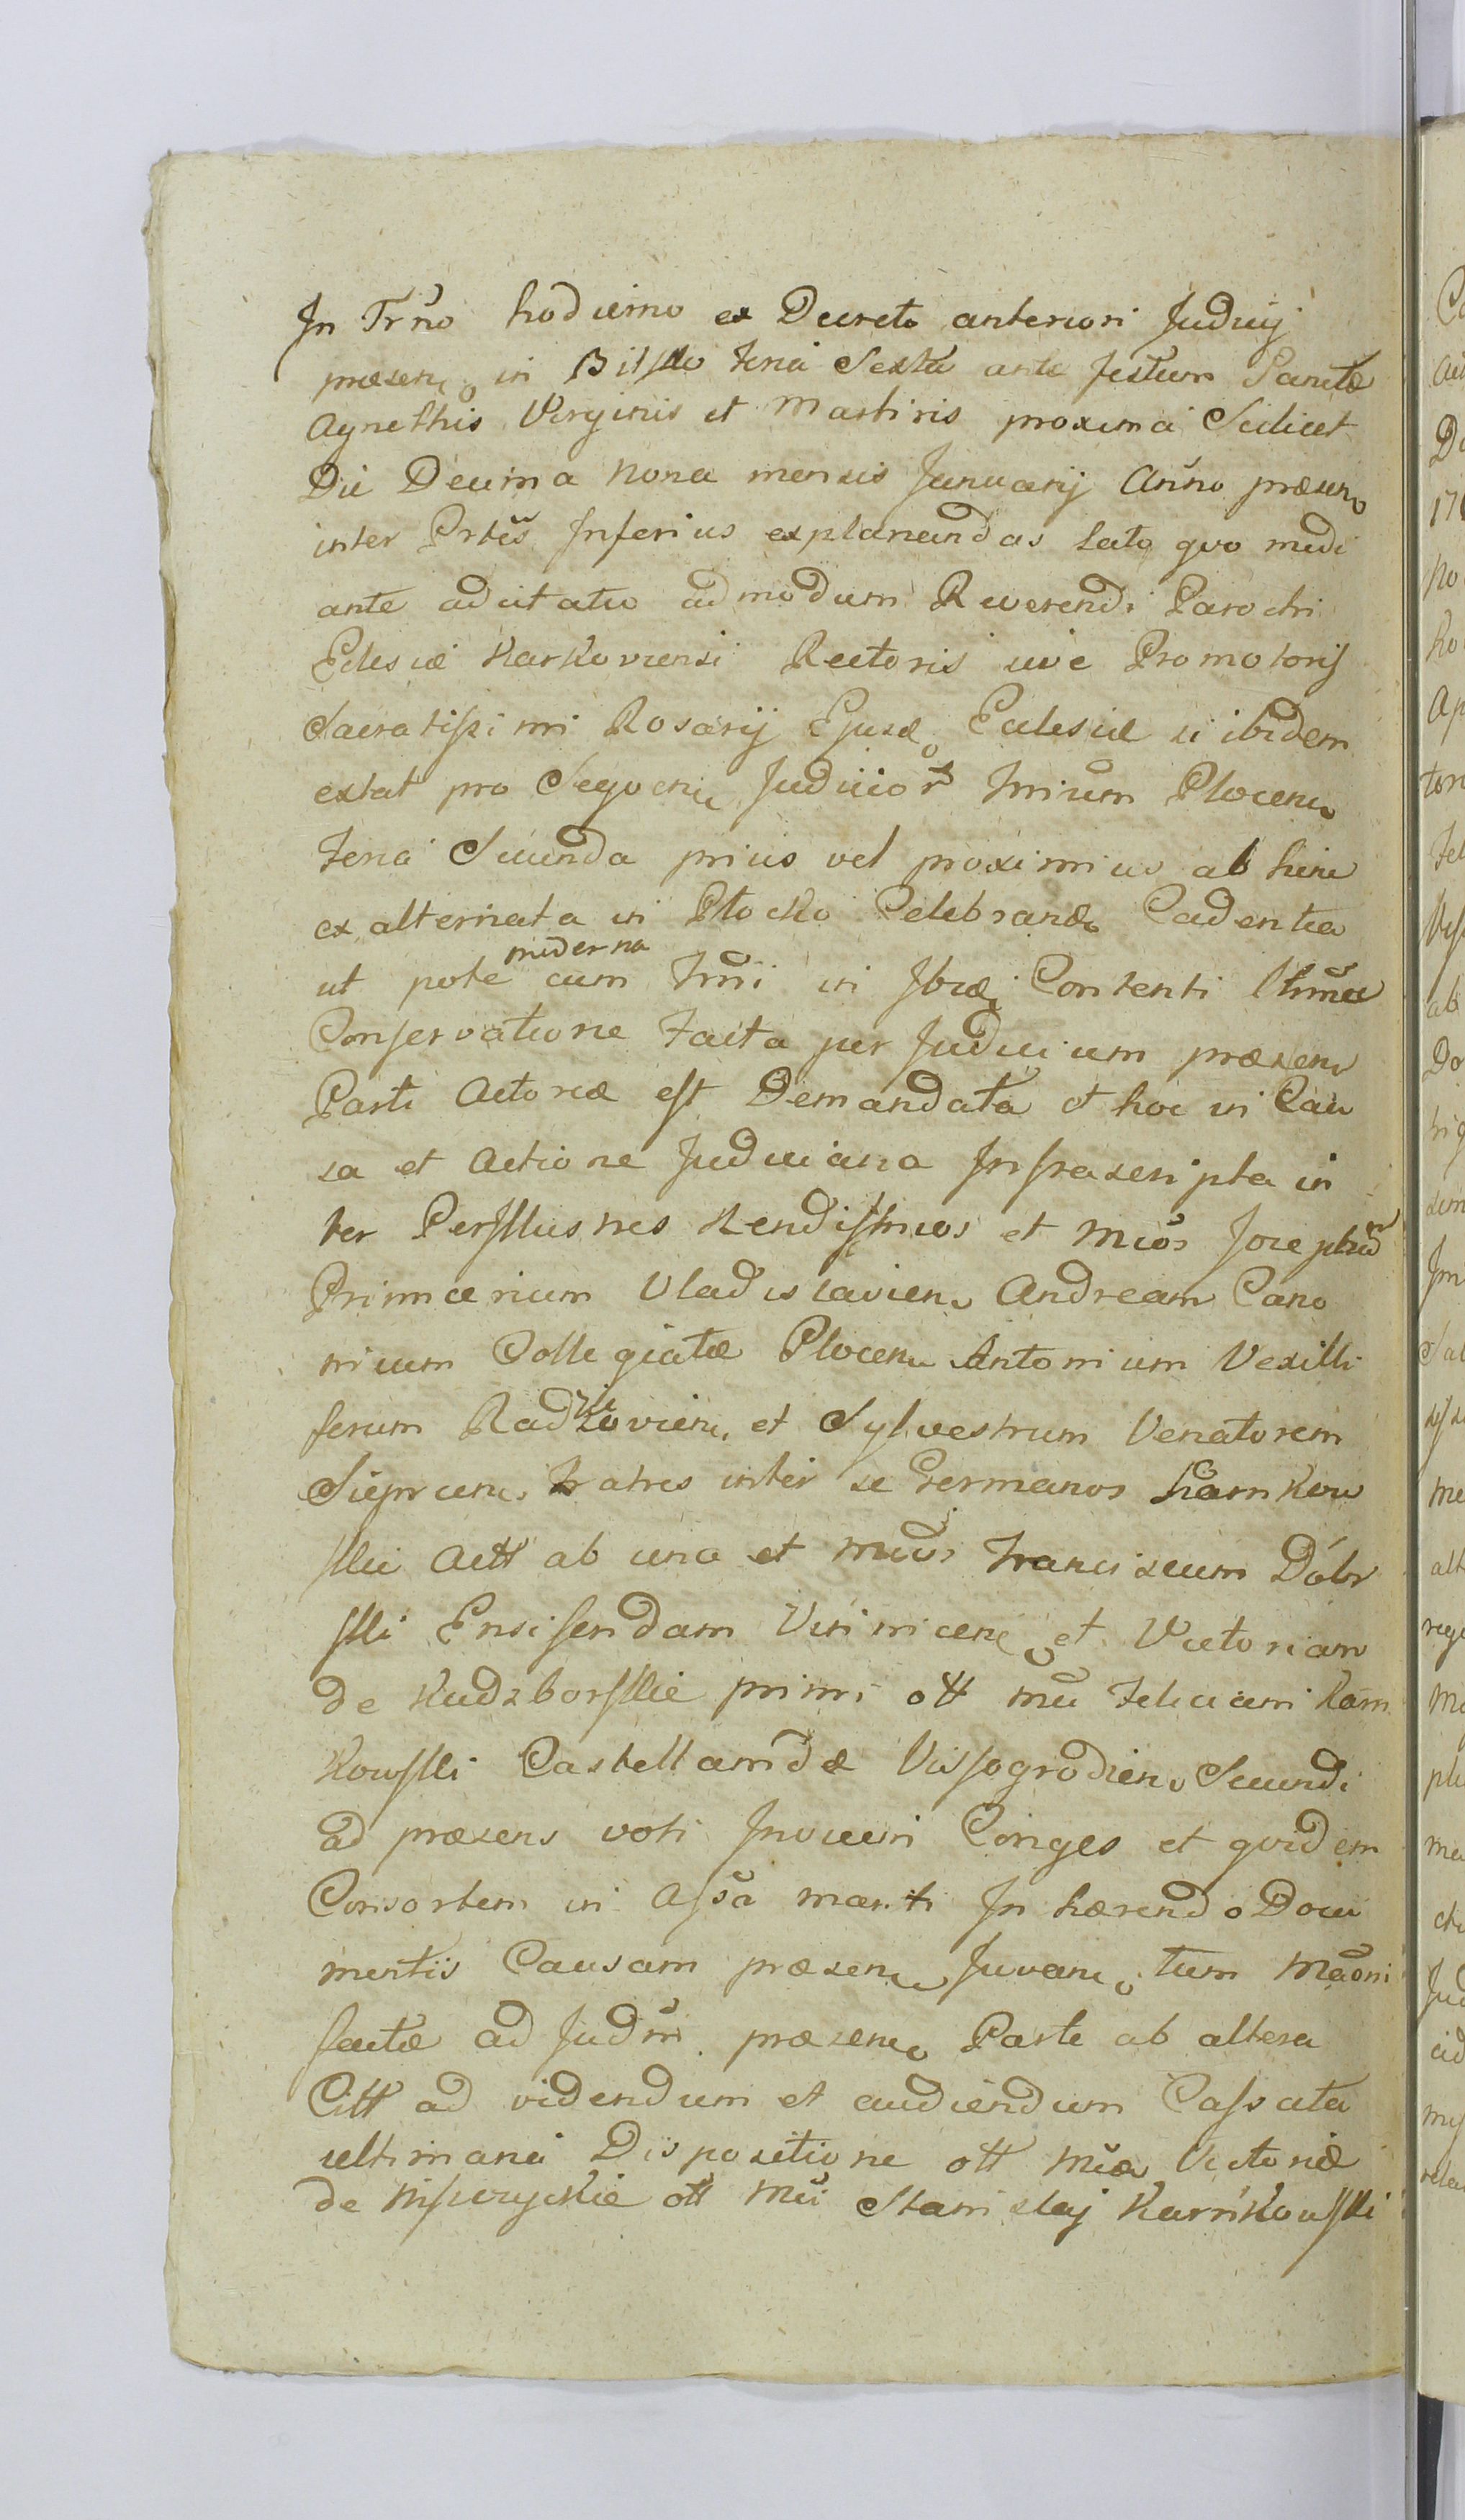 In Trno hodierno ex Decreto anteriori Judicij
præsen. in Bilsko Feria Sexta ante Festum Sanctæ
Agnethis Virginis et Martiris proxima Scilicet
Die Decima Nona mensis Januarij Anno præsen
inter Prtes Inferius explanandas Lato quo medi
ante adcitatio admodum Reverendi Parochi
Eclesiæ Karkoviensi Rectoris sive Promotoris
Sacratissimi Rosarij Ejusd Eclesiæ si ibidem
extat pro Sequen Judicior Trium Plocen
Feria Secunda prius vel proximius ab hinc
ex alternata in Plocko Celebrand Cadentia
ut pote cum moderna Trni in Ibid Contenti
Conservatione Facta per Judicium præsens
Parti Actoreæ est Demandata et hoc in Cau
sa et Actione Judiciaria Infrascripta in
ter Perillustres Rendissimos et Mcos Josephum
Primicerium Vladislavien. Andream Cano
nicum Collegiatæ Plocen Antonium Vexilli
ferum Radzieiovien. et Sylvestrum Venatorem
Sieprcen. Fratres inter se Germanos Karnkow
skie Actt ab una et Mcos Franciscum Dóbr
ski Ensiferidam Vinnicen. et Victoriam
de Kudzborskie primi ott Mci Feliciani Karn
kowski Castellanidæ Vissogrodien. Secundi
ad præsens voti Invicem Conges et quidem
Consortem in Assa mariti In hærendo Docu
mentis Causam præsen Juvan. tum
factæ ad Judm præsen. Parte ab altera
Citt ad videndum et audiendum Cassata
ultimaria Dispositione ott Mcæ Victoriæ
de ott Mci Stanislaj Karnkowski